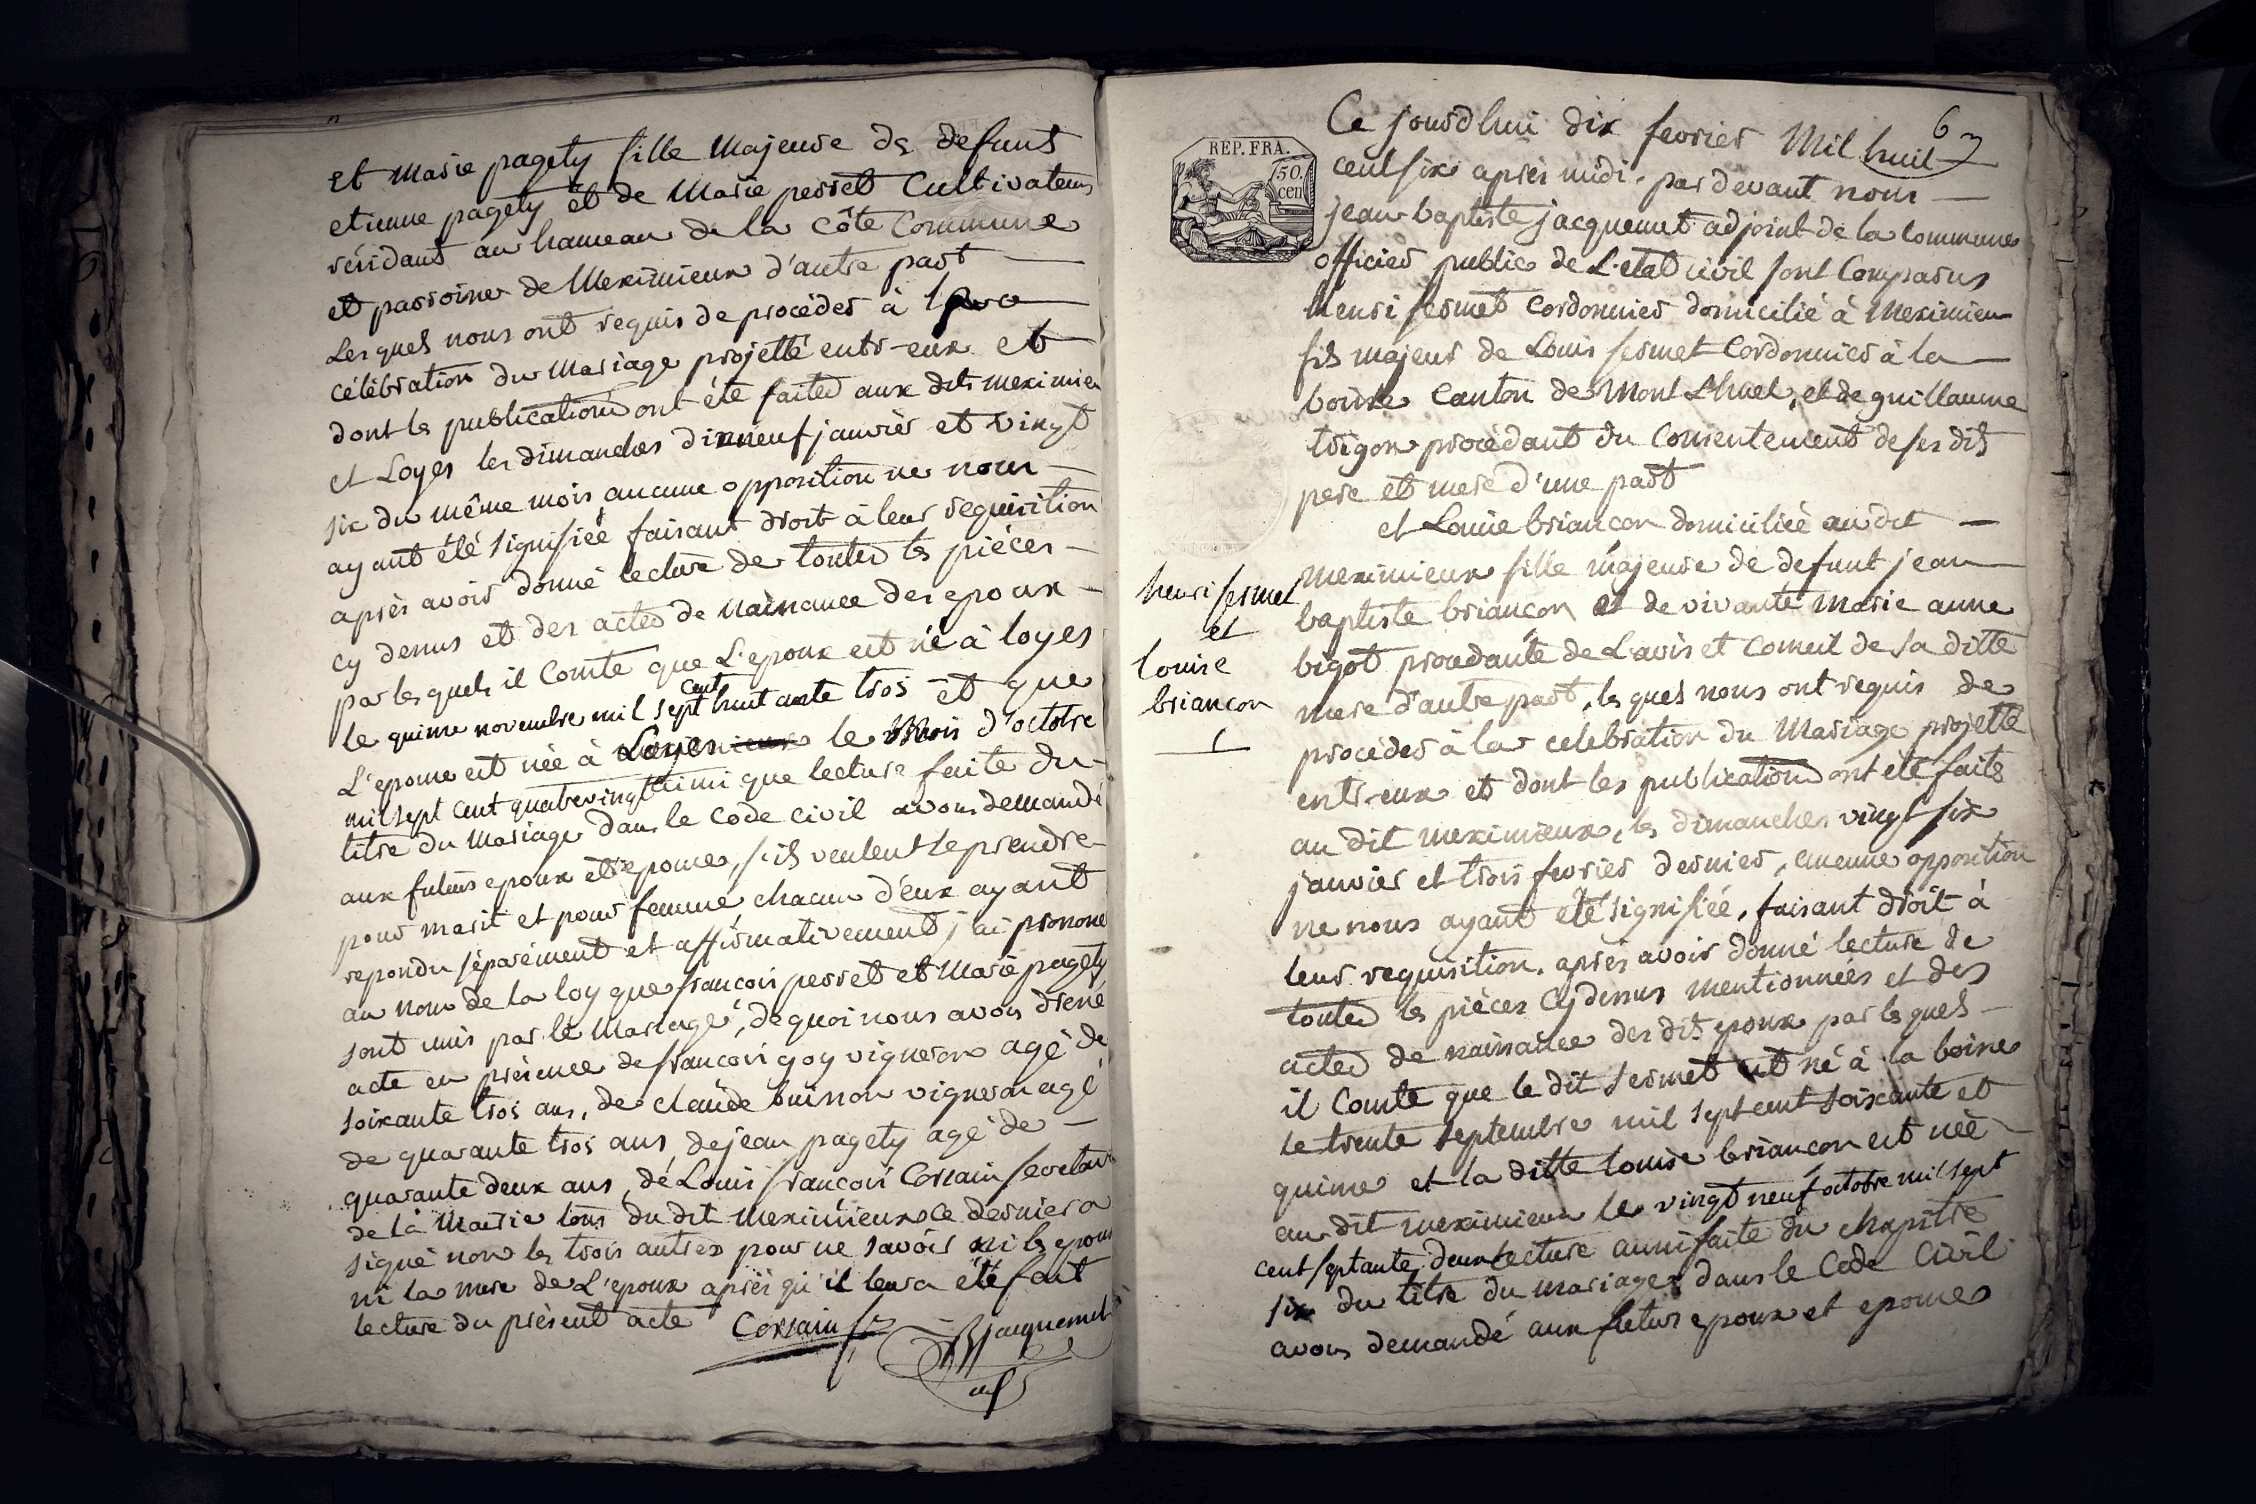 et Marie pagety fille Majeure de defunt
etienne pagety et de Marie perret Cultivateurs
résidant au hameau de la Côte Commune
et parroisse de Meximieux d'autre part
Les quels nous ont requis de procéder à la
célébration du Mariage projetté entr-eux et
dont les publications ont été faites aux dits meximieu
et Loyes les dimanches dixneuf janvier et vingt
six du même mois, aucune opposition ne nous
ayant été signifiée faisant droit à leur requisition
après avoir donné lecture de toutes les pièces
cy dessus et des actes de Naissance des epoux
par lesquels il Conste que L'epoux est né à loyes
le quinze novembre mil sept cent huitante trois et que
L'epouse est née à Loyes le trois d'octobre
mil sept cent quatrevingt ainsi que lecture faite du
titre du Mariage dans le Code Civil avons demandé
aux futurs epoux et epouse, s'ils veulent se prendre
pour marit et pour femme chacun d'eux ayant
repondu séparément et affirmativement j'ai prononcé
au nom de la loy que françois perret et Marie pagety
sont unis par le Mariage, de quoi nous avons dressé
acte en présence de françois goy vigneron agé de
soixante trois ans, de claude buisson vigneron agé
de quarante trois ans, de jean pagety agé de
quarante deux ans, de Louis françois Corsain secretair
de la Mairie tous du dit meximieux ce dernier a
signé non les trois autres pour ne savoir ni les epoux
ni la mere de L'epoux après qu'il leur a été fait
lecture du présent acte Corsain
JB jacquemet
adj
6
REP. FRA.
50.
cen
Ce jourd'hui dix fevrier Mil huit
cent six après midi, par devant nous
jean baptiste jacquemet adjoint de la commune
officier public de L'etat civil sont Comparus
henri sermet Cordonnier domicilié à Meximieu
fils majeur de Louis sermet Cordonnier à la
boisse Canton de Mont Luel, et de guillaume
trigon procédant du Consentement de ses dits
pere et mere d'une part
et Louise briançon domiciliée au dit
meximieux fille majeure de defunt jean
baptiste briançon et de vivante Marie anne
bigot procédante de L'avis et Conseil de sa ditte
mere d'autre part, les quels nous ont requis de
procéder à la celebration du Mariage projetté
entr-eux et dont les publications ont été faits
au dit meximieux, les dimanches vingt six
janvier et trois fevrier dernier, aucune opposition
ne nous ayant été signifiée, faisant droit à
leur requisition, après avoir donné lecture de
toutes les pièces cy dessus mentionnées et des
actes de naissance des dits epoux par les quels
il Conste que le dit sermet est né à la boisse
le trente septembre mil sept cent soixante et
quinze et la ditte louise briançon est née
au dit meximieux le vingt neuf octobre mil sept
cent septante deux lecture aussi faite du chapitre
six du titre du mariage dans le Code Civil
avons demandé aux futurs epoux et epouse
henri sermet
et
louise
briançon